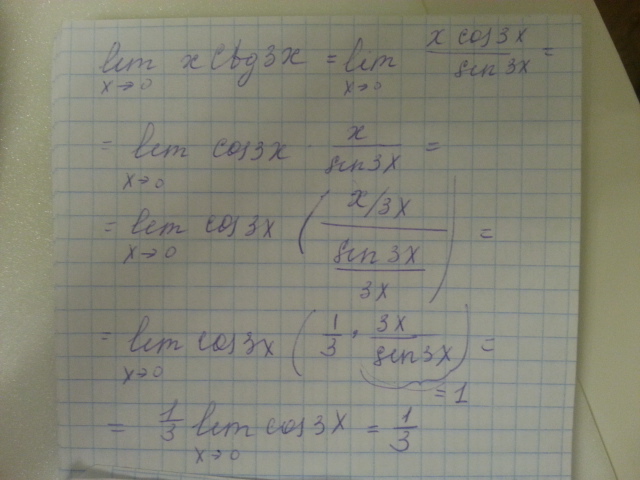 lim x→0 x ctg3x = lim x→0 x cos3x / sin3x =
= lim x→0 cos3x · x / sin3x =
= lim x→0 cos3x ( x/3x / sin3x / 3x ) =
= lim x→0 cos3x ( 1/3 · 3x / sin3x ) =
= 1
= 1/3 lim x→0 cos3x = 1/3